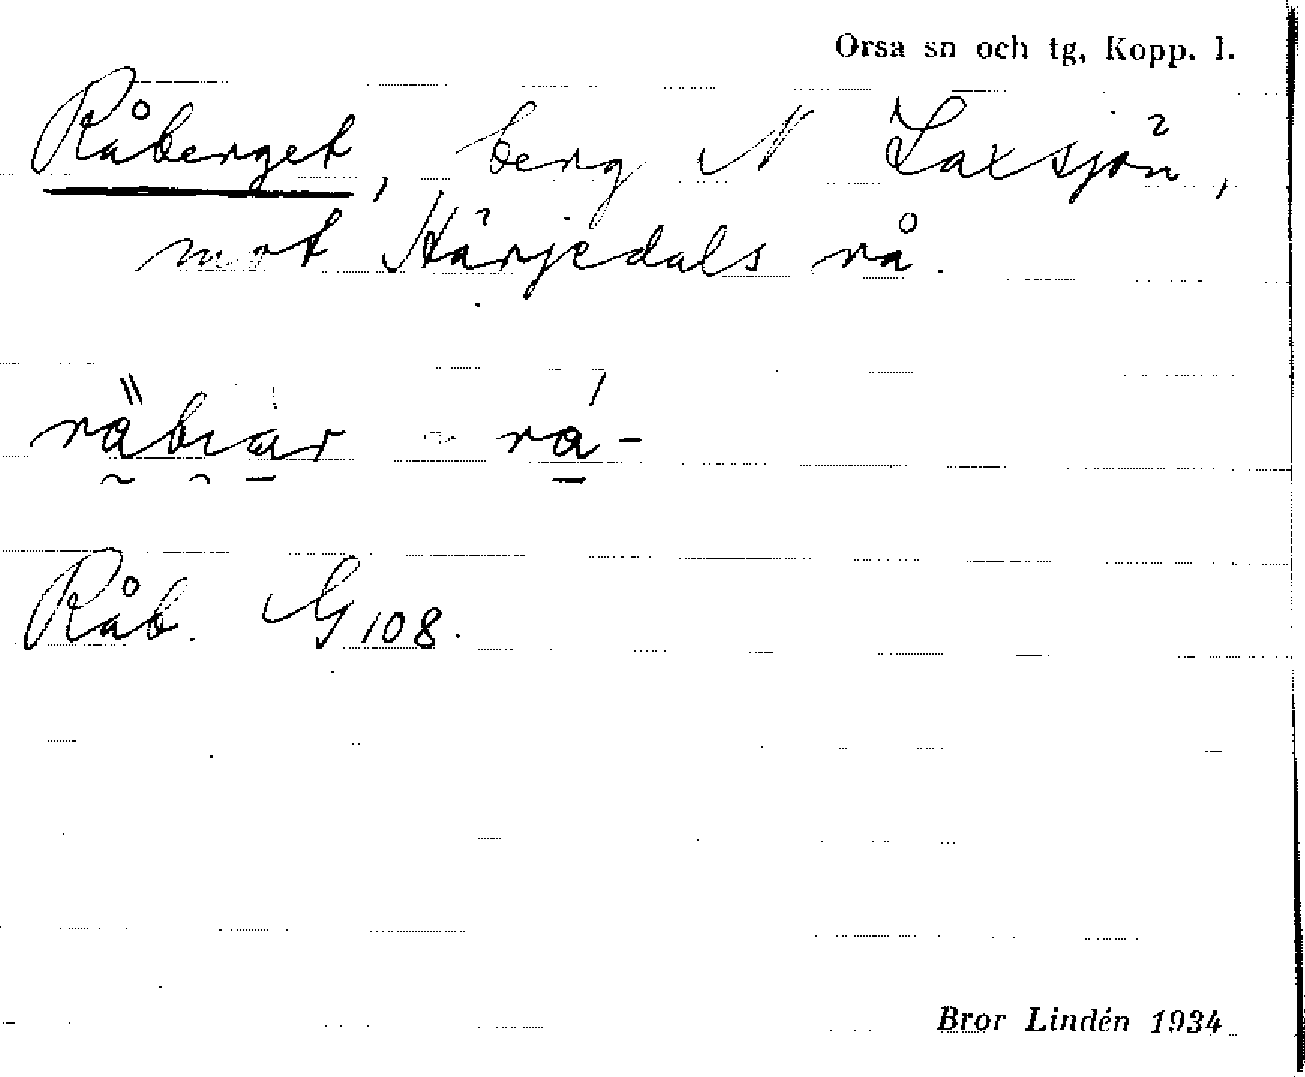 Orsa sn och tg, Kopp. l.
Råberget, berg N Laxsjön,
mot Härjedals rå.
räbiär ~ rå-
Råb. G 108.
Bror Lindén 1934